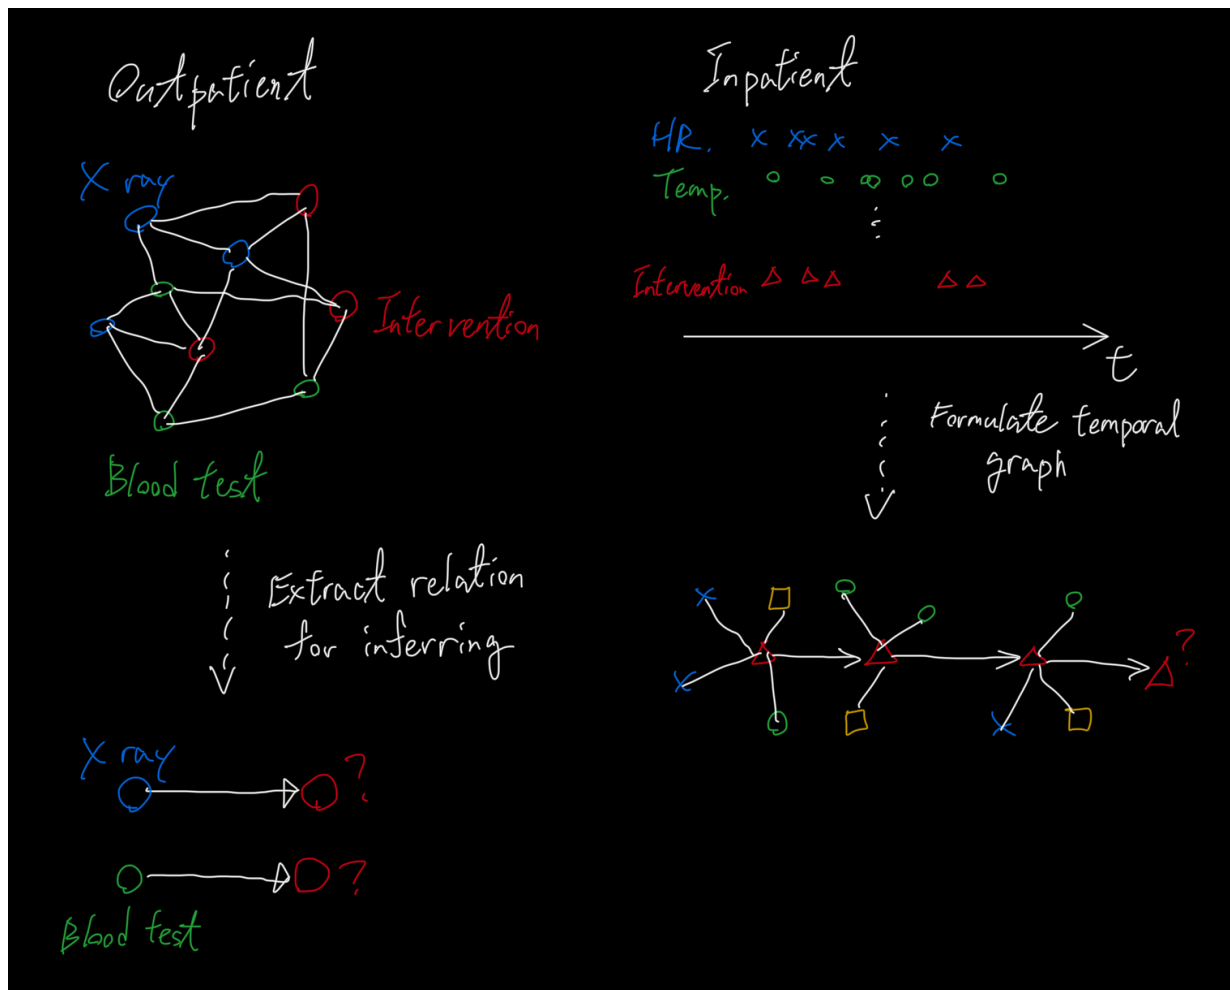 Outpatient
X ray
Intervention
Blood test
Extract relation
for inferring
X ray
?
?
Blood test
Inpatient
HR.
Temp.
Intervention
t
Formulate temporal
graph
?